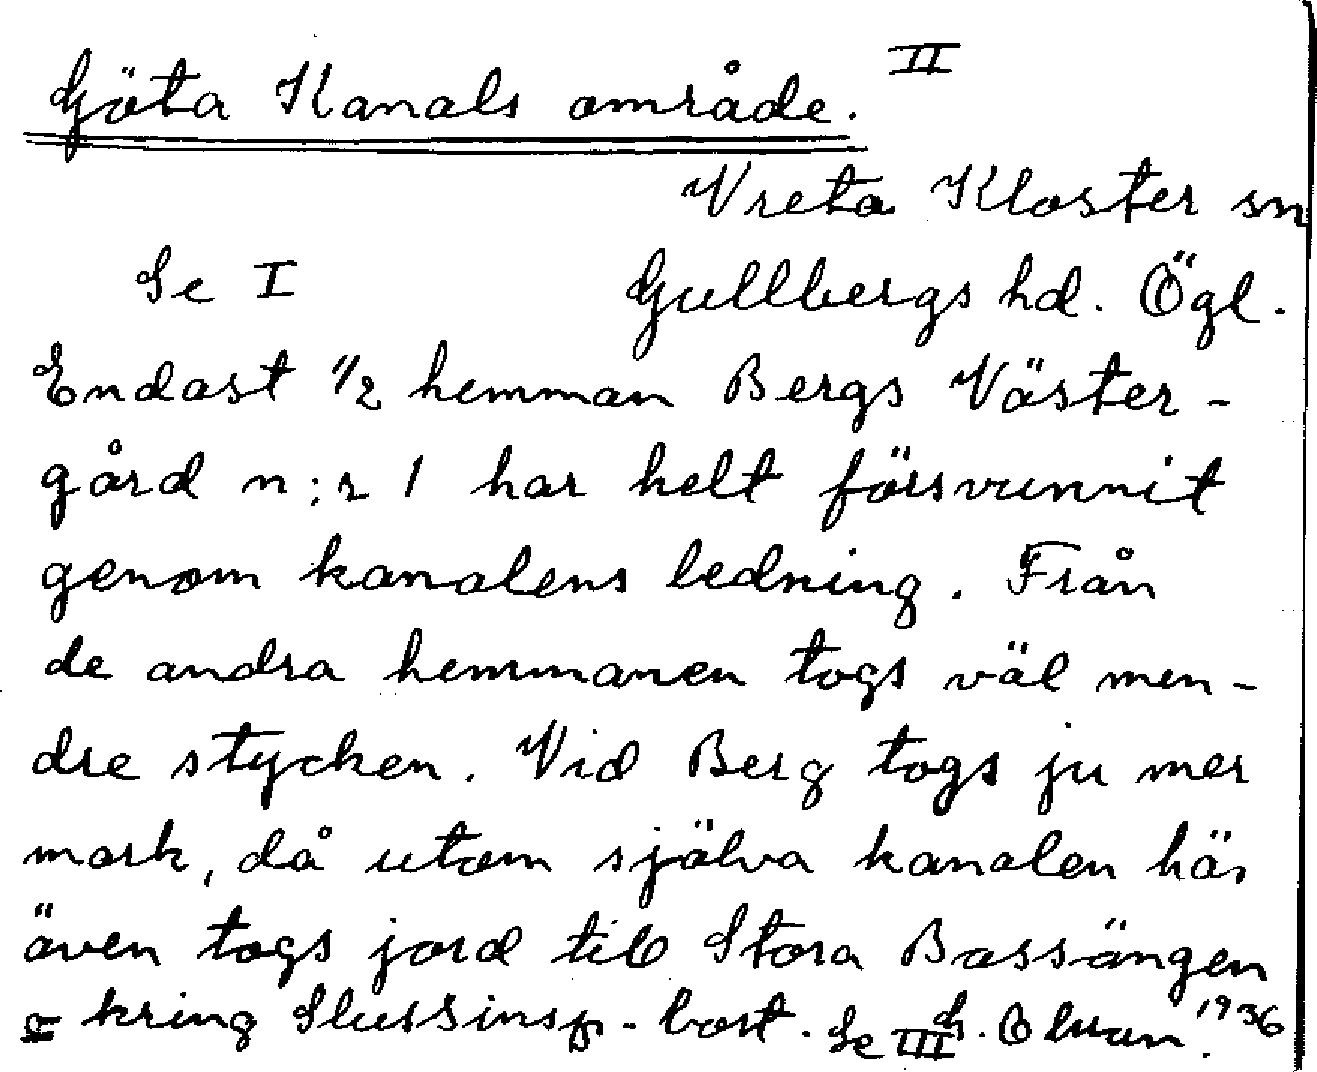 Göta Kanals område. II
Vreta Kloster sn
Se I Gullbergs hd. Ögl.
Endast 1/2 hemman Bergs Väster-
gård n:r 1 har helt försvunnit
genom kanalens ledning. Från
de andra hemmanen togs väl min-
dre stycken. Vid Berg togs ju mer
mark, då utom själva kanalen här
även togs jord till Stora Bassängen
o kring Slussinsp.-bost. Se III 1936